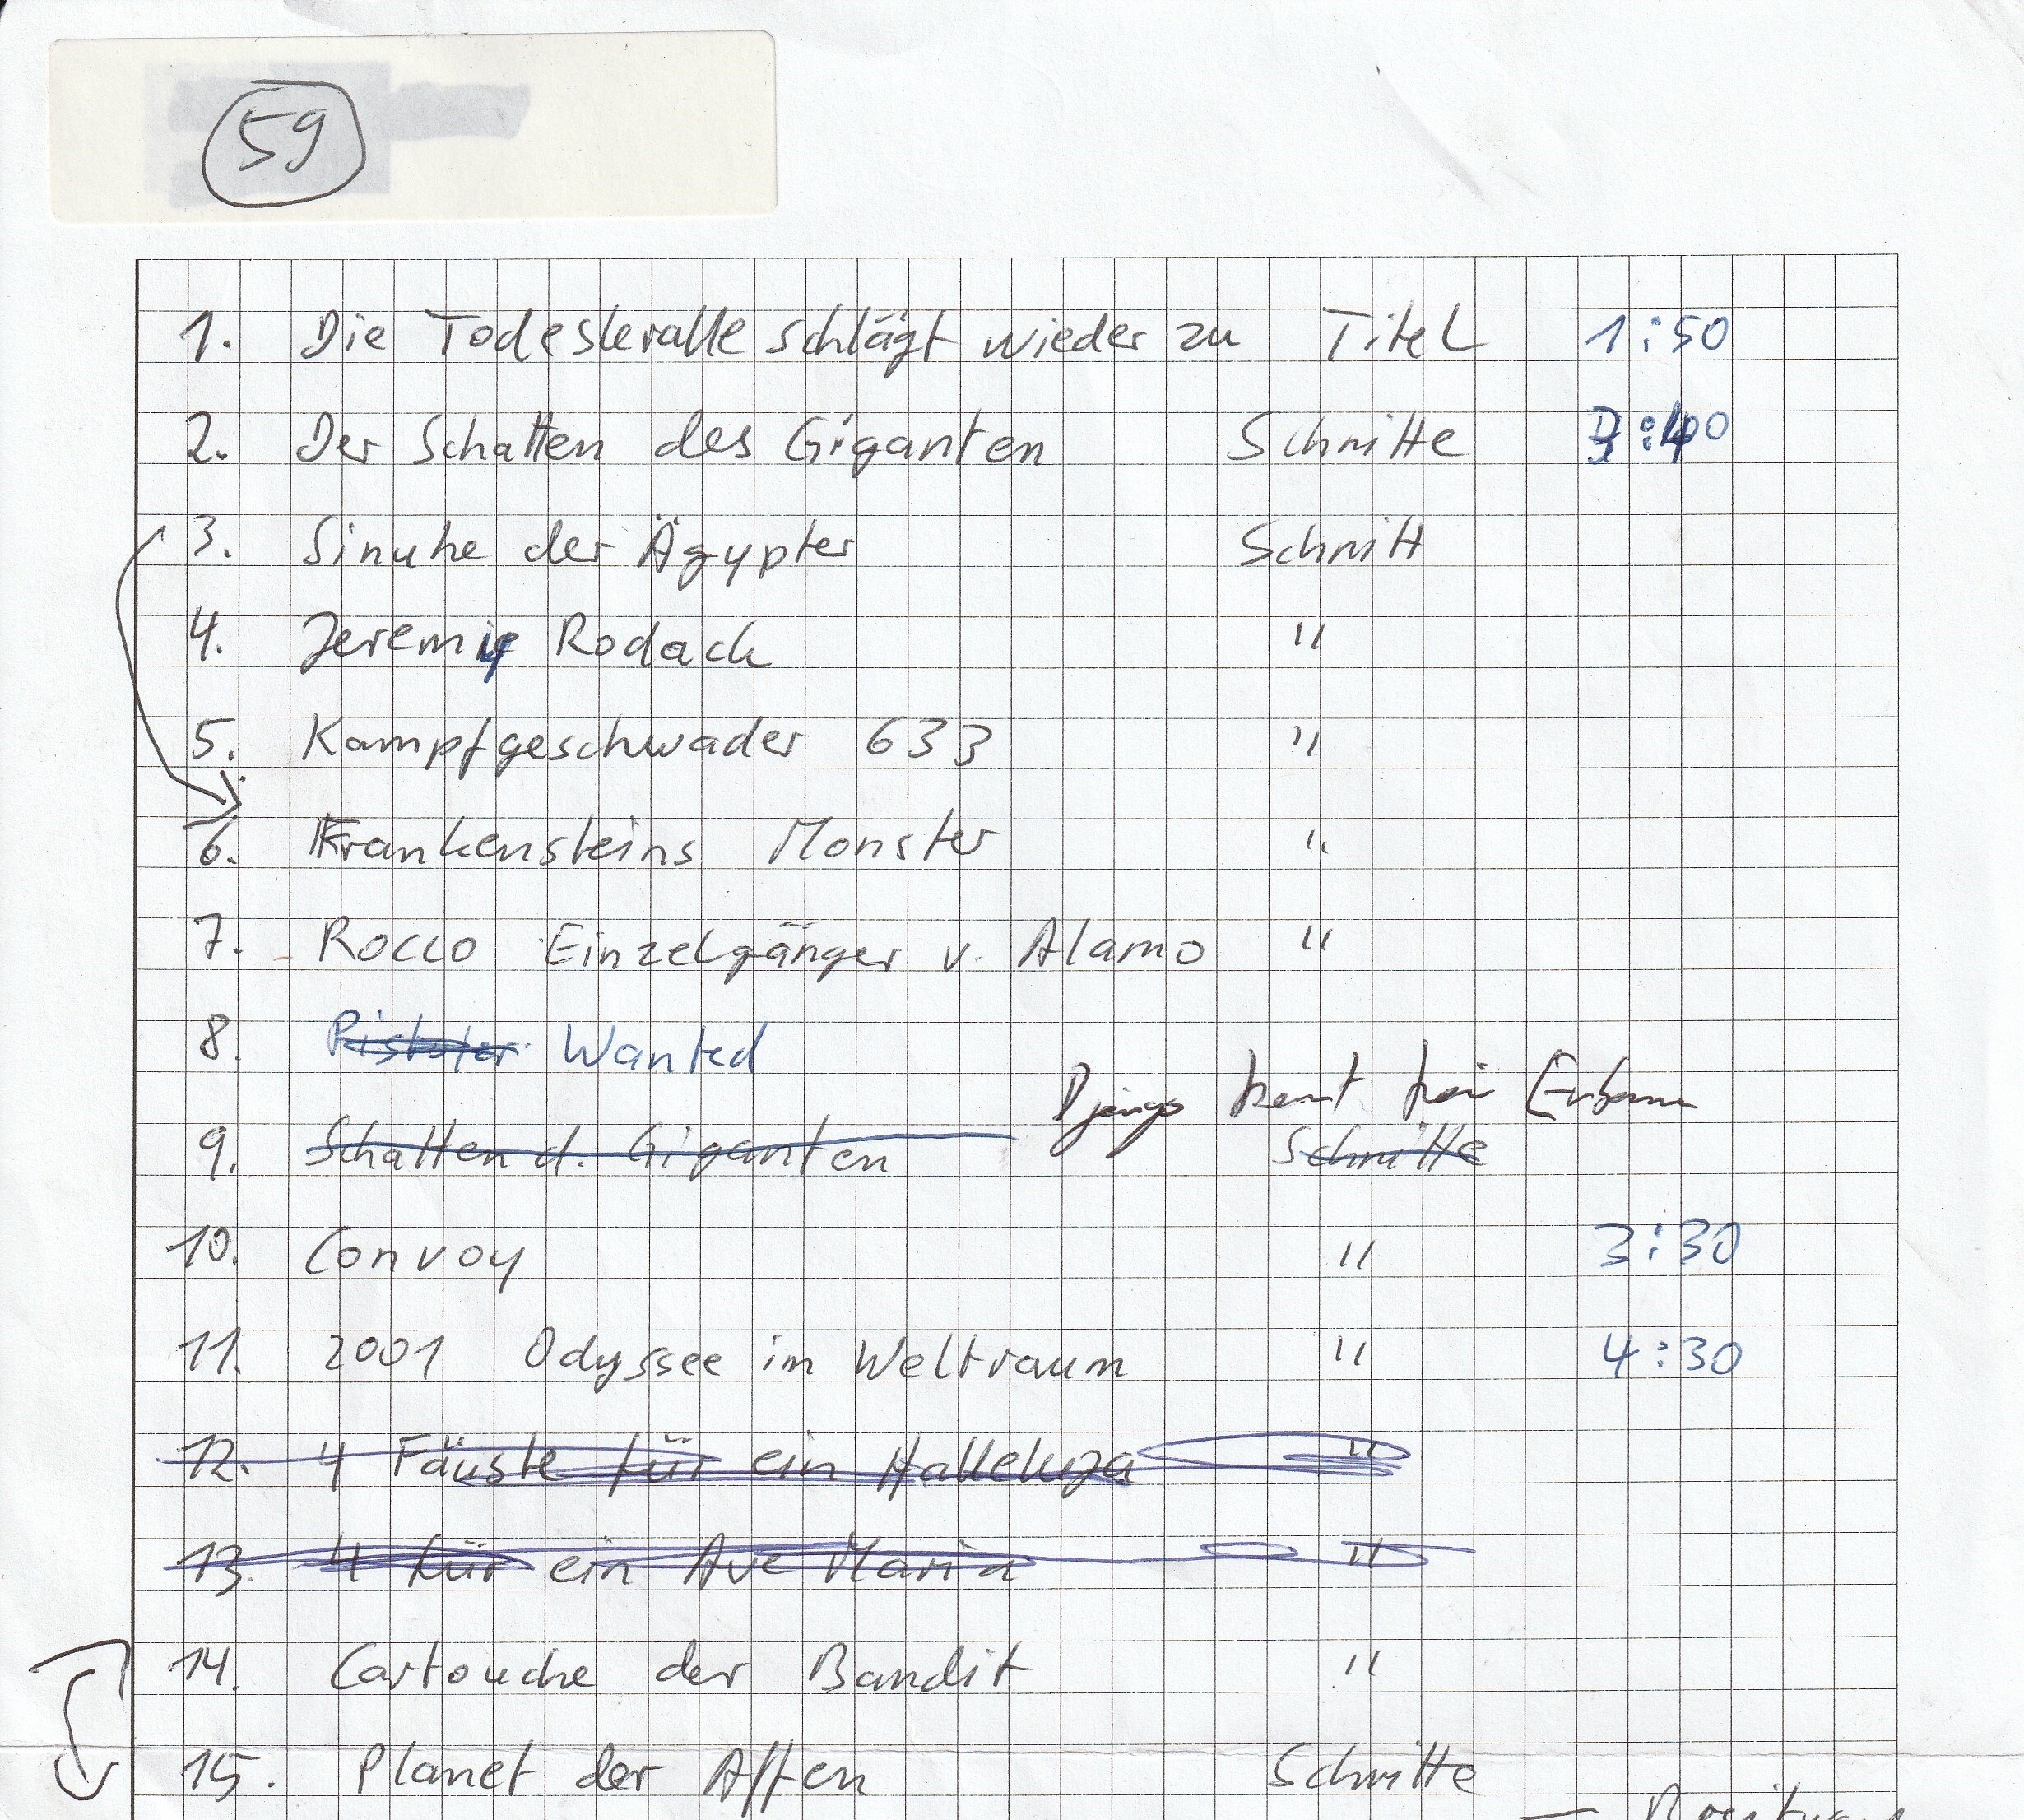 59
1. Die Todeskralle schlägt wieder zu Titel 1:50
2. Der Schatten des Giganten Schnitte
3. Sinuhe der Ägypter Schnitt
4. Jeremy Rodack "
5. Kampfgeschwader 633 "
6. Frankensteins Monster "
7. Rocco Einzelgänger v. Alamo "
8. Wanted
Django kennt kein Erbarm
9. Schatten d. Giganten Schnitte
10. Convoy " 3:30
11. 2001 Odyssee im Weltraum " 4:30
12. 4 Fäuste für ein Halleluja "
13. 4 für ein Ave Maria "
14. Cartouche der Bandit "
15. Planet der Affen Schnitte